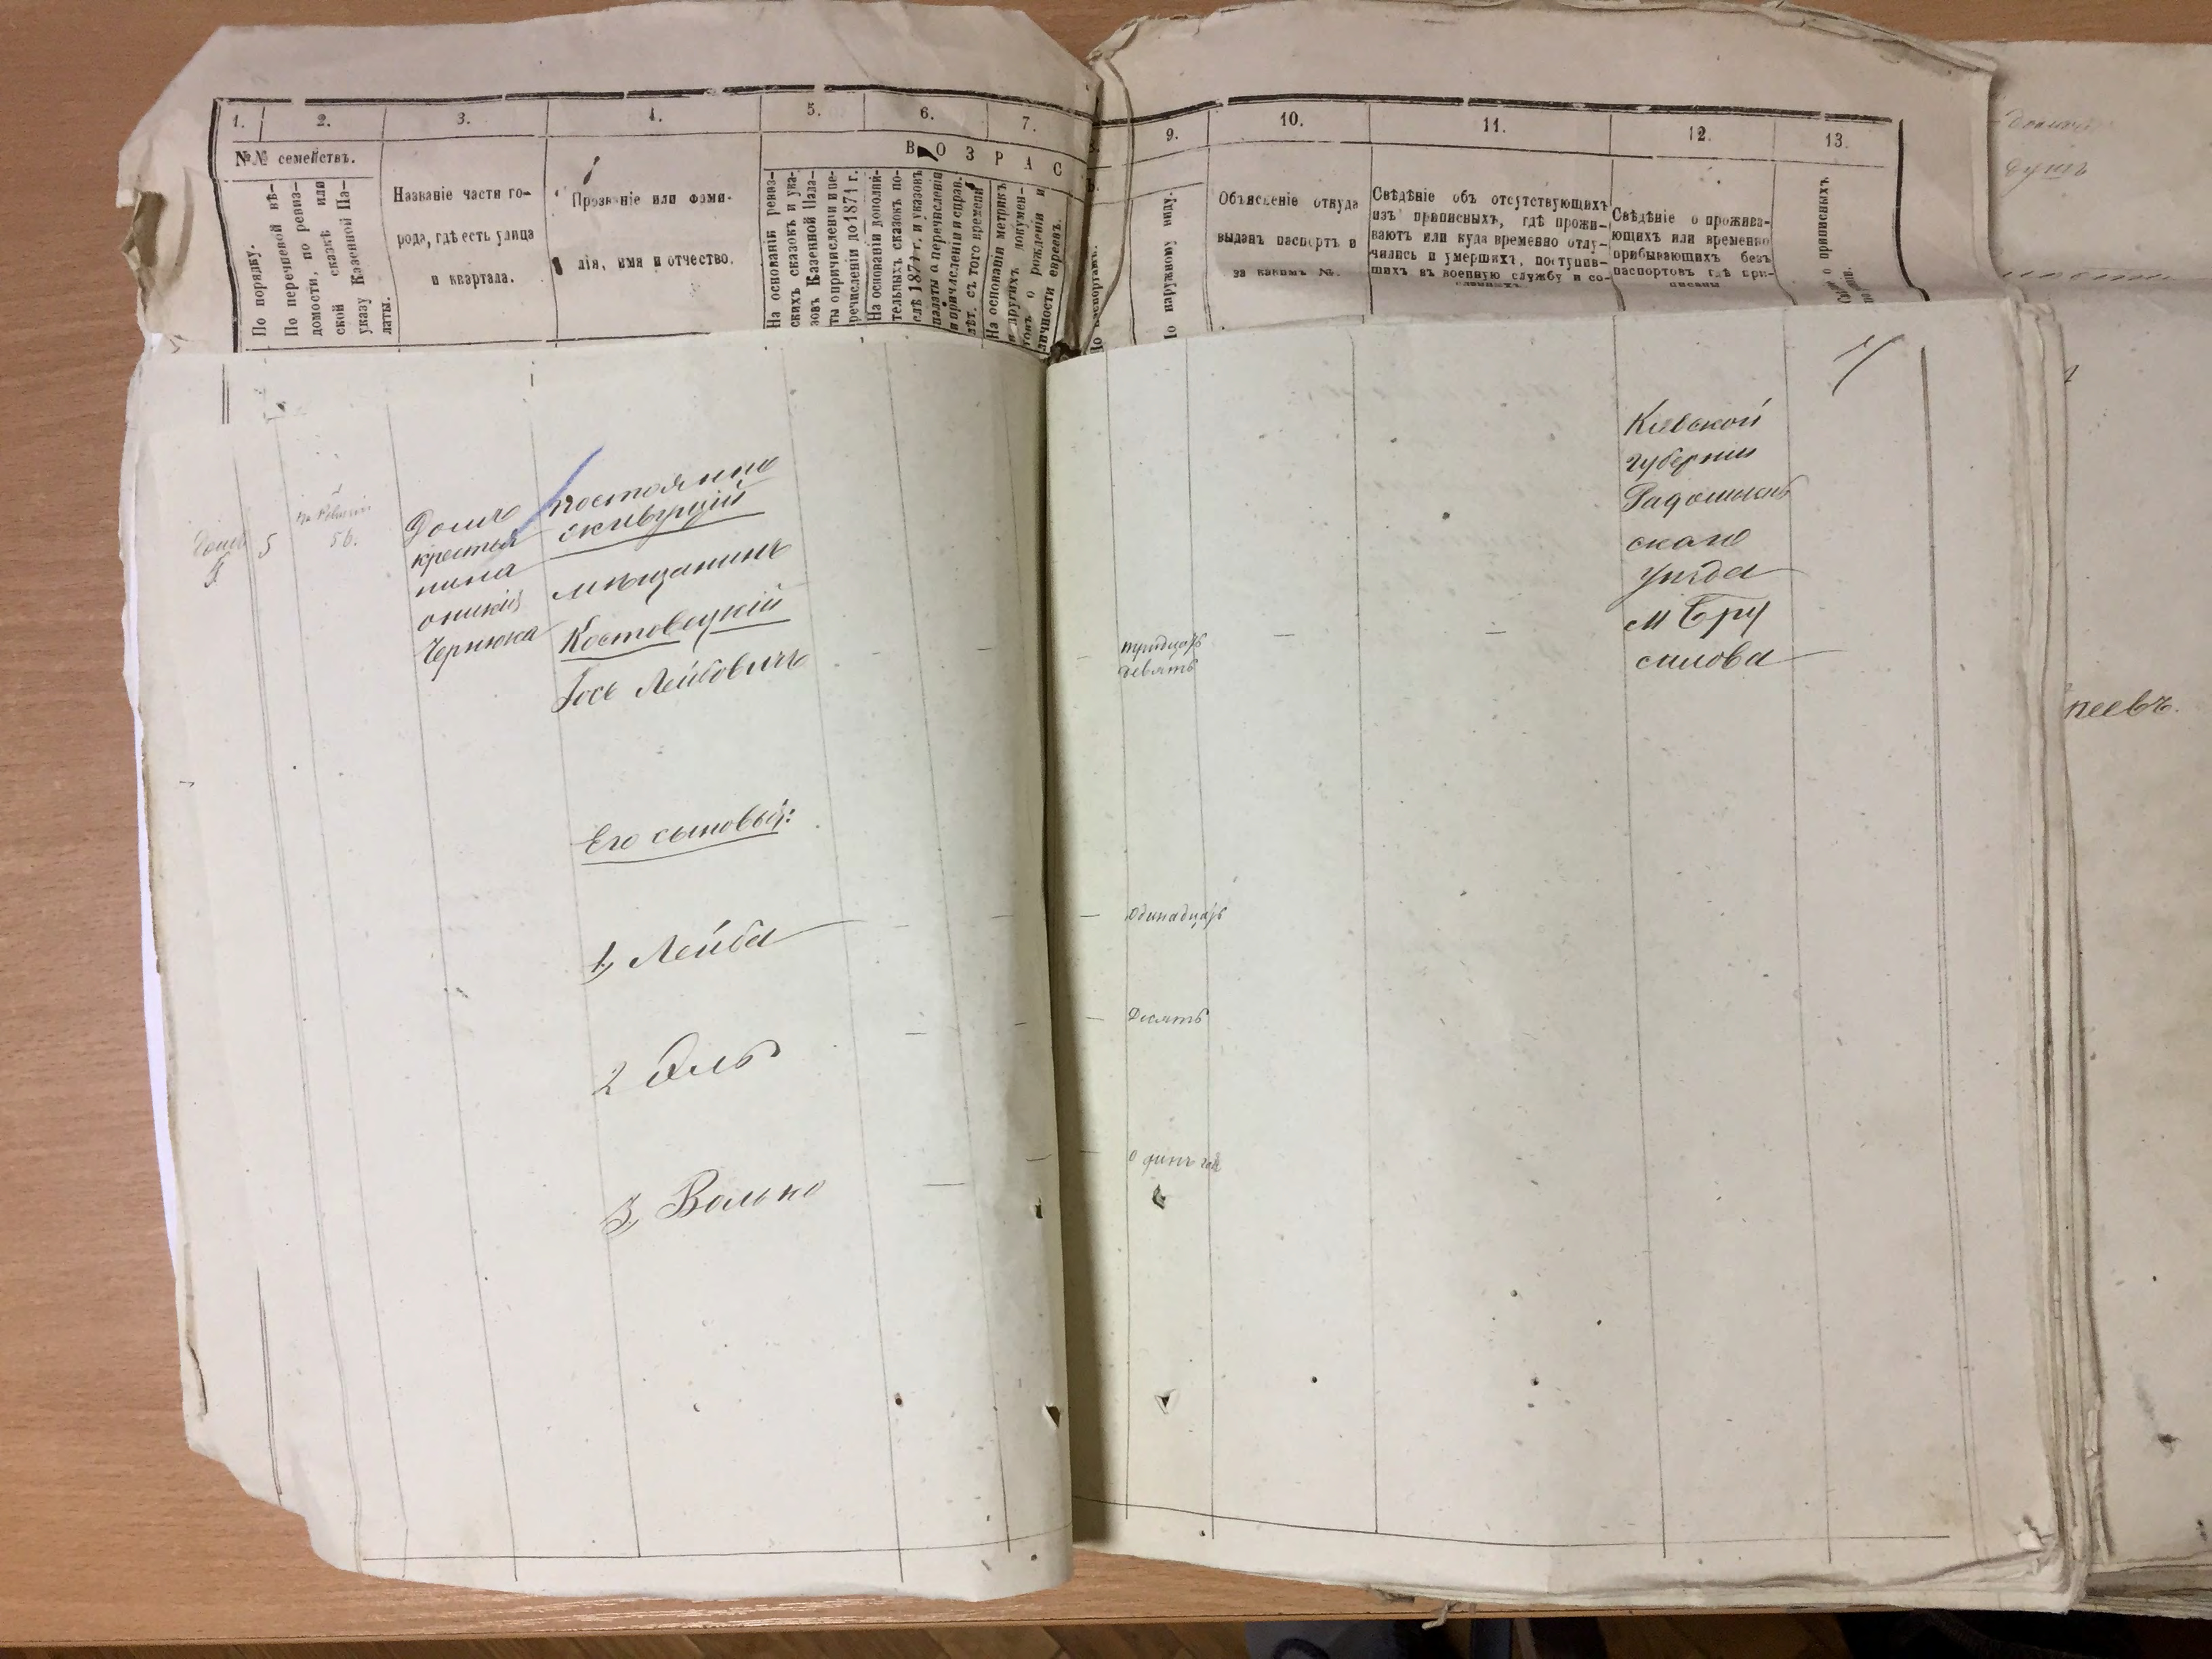 1.
2.
3.
4.
5.
6.
7.
№№ семействъ.
В О З Р А С
По порядку.
По перечневой вѣ-
домости, по ревиз-
ской сказкѣ или
указу Казенной Па-
латы.
Названіе части го-
рода, гдѣ есть улица
и квартала.
Прозваніе или фами-
лія, имя и отчество.
На основаніи ревиз-
скихъ сказокъ и ука-
зовъ Казенной Пала-
ты о причисленіи и пе-
речисленіи до 1871 г.
На основаніи дополни-
тельныхъ сказокъ по-
слѣ 1871 г. и указовъ
палаты о перечисленіи
и причисленіи и справ.
лѣт. съ того времени
На основаніи метрикъ
и другихъ докумен-
товъ о рожденіи и
личности евреевъ.
9.
10.
11.
12.
13.
По наружному виду.
Объясненіе откуда
выданъ паспортъ и
за какимъ №.
Свѣдѣніе объ отсутствующихъ
изъ приписныхъ, гдѣ прожи-
ваютъ или куда временно отлу-
чились и умершихъ, поступив-
шихъ въ военную службу и со-
Свѣдѣніе о прожива-
ющихъ или временно
прибывающихъ безъ
паспортовъ гдѣ при-
писаны
о приписныхъ
душъ
домъ
4
5
по Ревизіи
56.
Домъ
крестья
нина
оникія
Чернюка
постоянно
живущій
мѣщанинъ
Костовецкій
Іось Лейбовичъ
Его сыновья:
1, Лейба
2 Эль
3, Волько
тридцать
девять
одинадцать
Десять
одинъ годъ
Кіевской
губерніи
Радомысль
скаго
уѣзда
м Бру
силова
кеевъ.